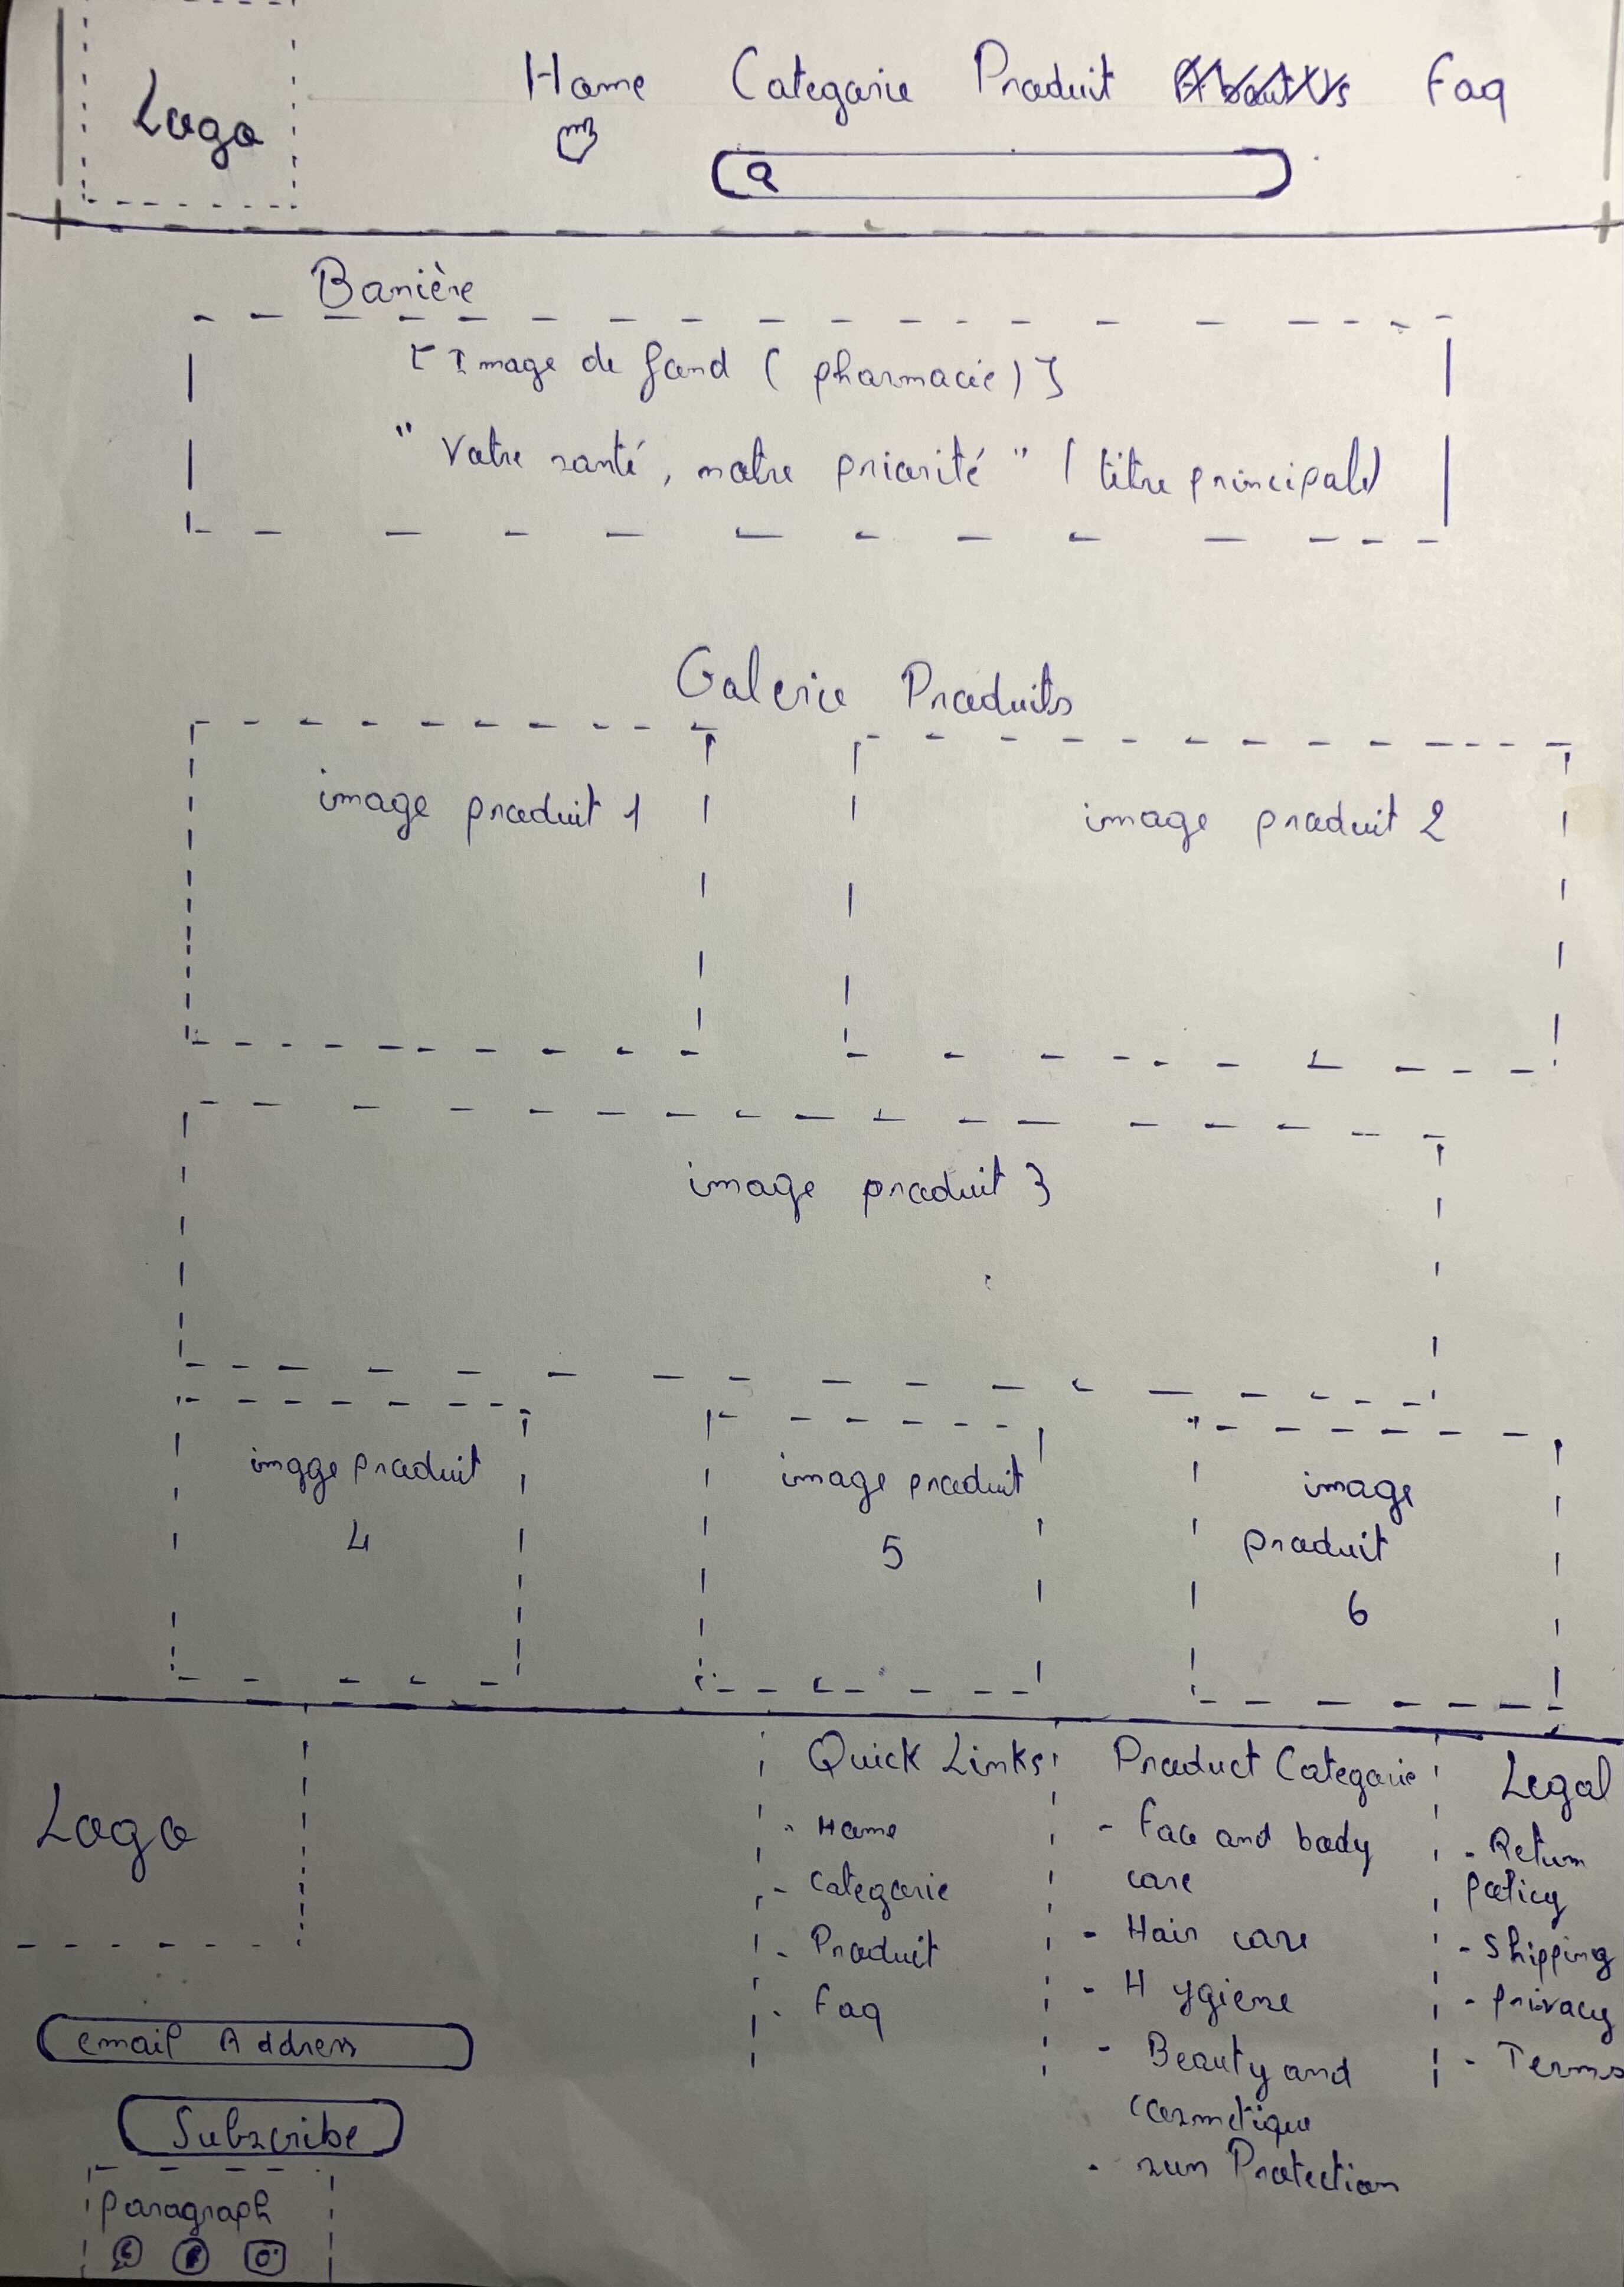 Logo
Home Categorie Produit About Us Faq
Banière
[Image de fond (pharmacie)]
"Votre santé, notre priorité" (titre principale)
Galerie Produits
image produit 1
image produit 2
image produit 3
image produit
4
image produit
5
image
produit
6
Logo
email Address
Subscribe
paragraph
Quick Links
- Home
- Categorie
- Produit
- Faq
Product Categorie
- Face and body
care
- Hair care
- Hygiene
- Beauty and
cosmetique
- sun Protection
Legal
- Return
policy
- Shipping
- privacy
- Terms